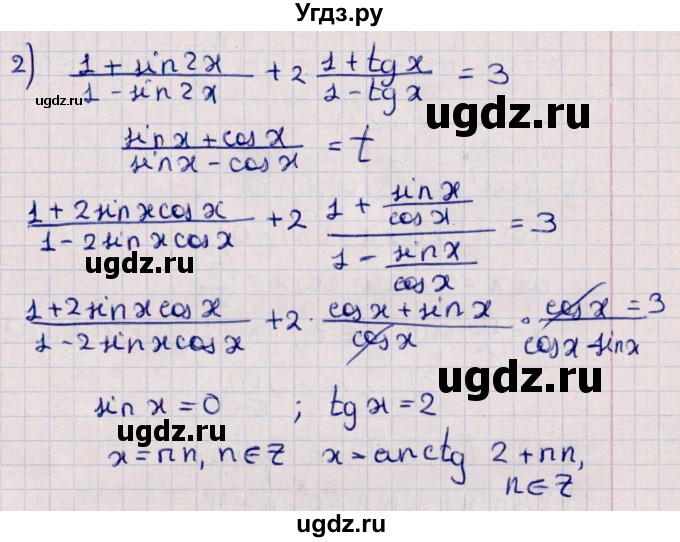 Угдз.ру
2) (1 + sin 2x)/(1 - sin 2x) + 2 (1 + tg x)/(1 - tg x) = 3
www.gdz.ru
ugdz.ru
(sin x + cos x)/(sin x - cos x) = t
(1 + 2 sin x cos x)/(1 - 2 sin x cos x) + 2 (1 + sin x/cos x)/(1 - sin x/cos x) = 3
ugdz.ru
(1 + 2 sin x cos x)/(1 - 2 sin x cos x) + 2 · (cos x + sin x)/(cos x) · (cos x)/(cos x - sin x) = 3
ugdz.ru
sin x = 0 ; tg x = 2
x = πn, n ∈ Z x = arctg 2 + πn,
n ∈ Z
ugdz.ru
ugdz.ru